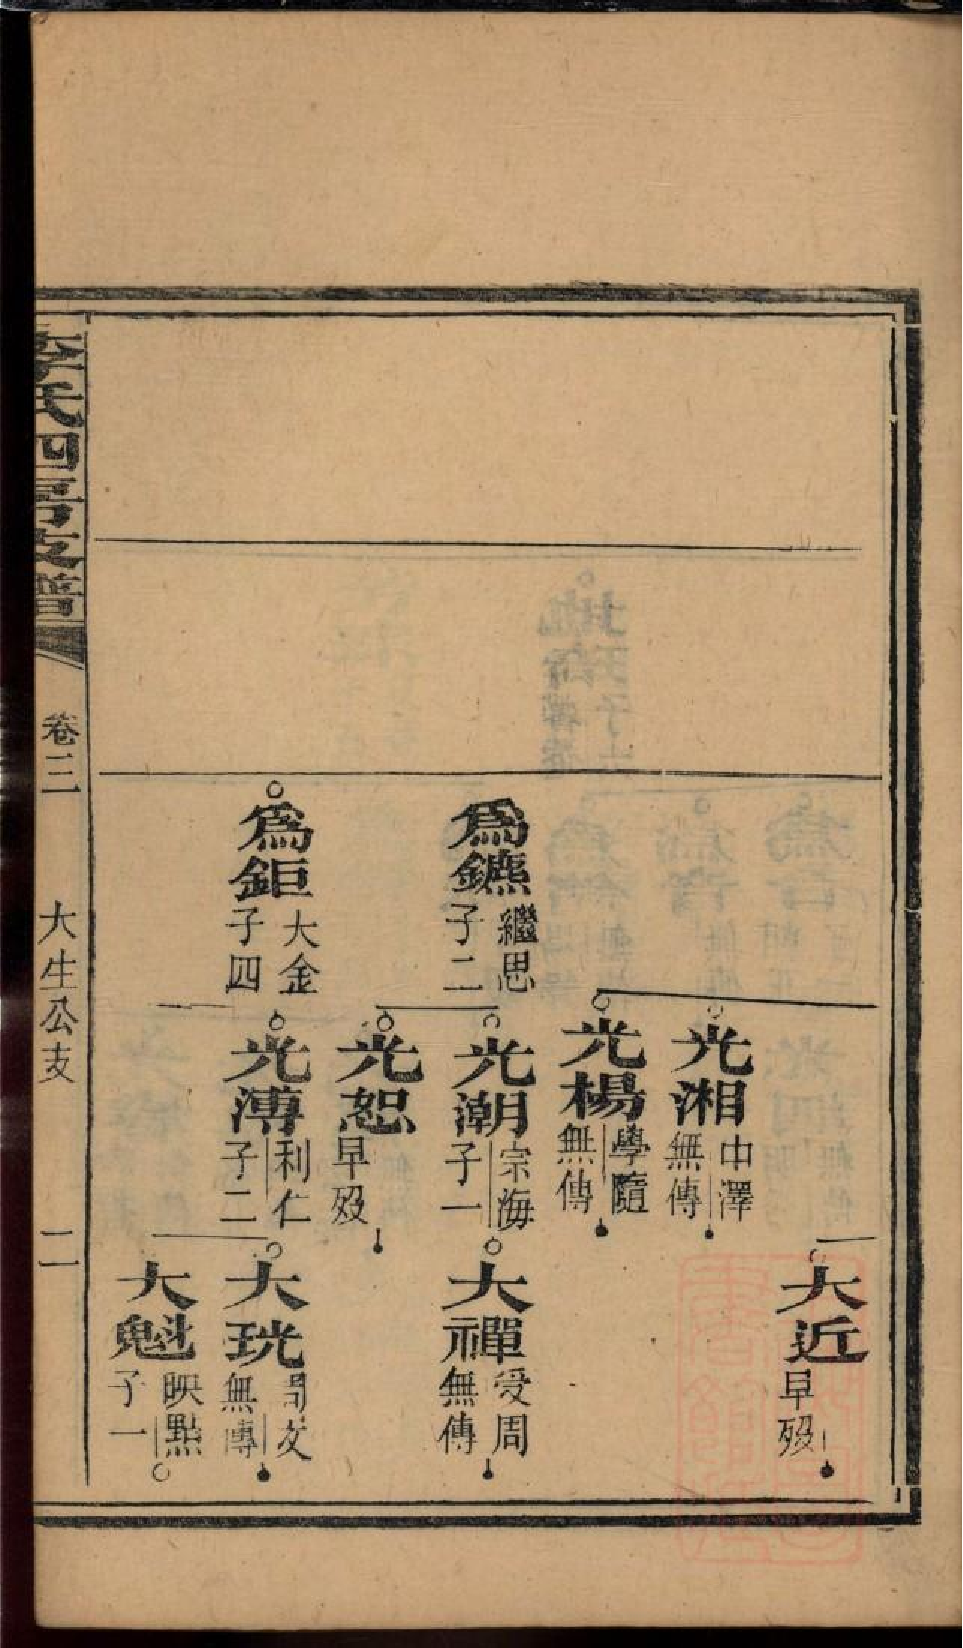 大近
早歿
光湘
中澤
無傳
光楊
學隨
無傳
為鑣
繼思
子二
光潮
宗海
子一
大禪
受周
無傳
光恕
早歿
為鉅
大金
子四
光溥
利仁
子二
大珖
無傳
大魁
映點
子一
李氏四房支譜
卷三
大生公支
二